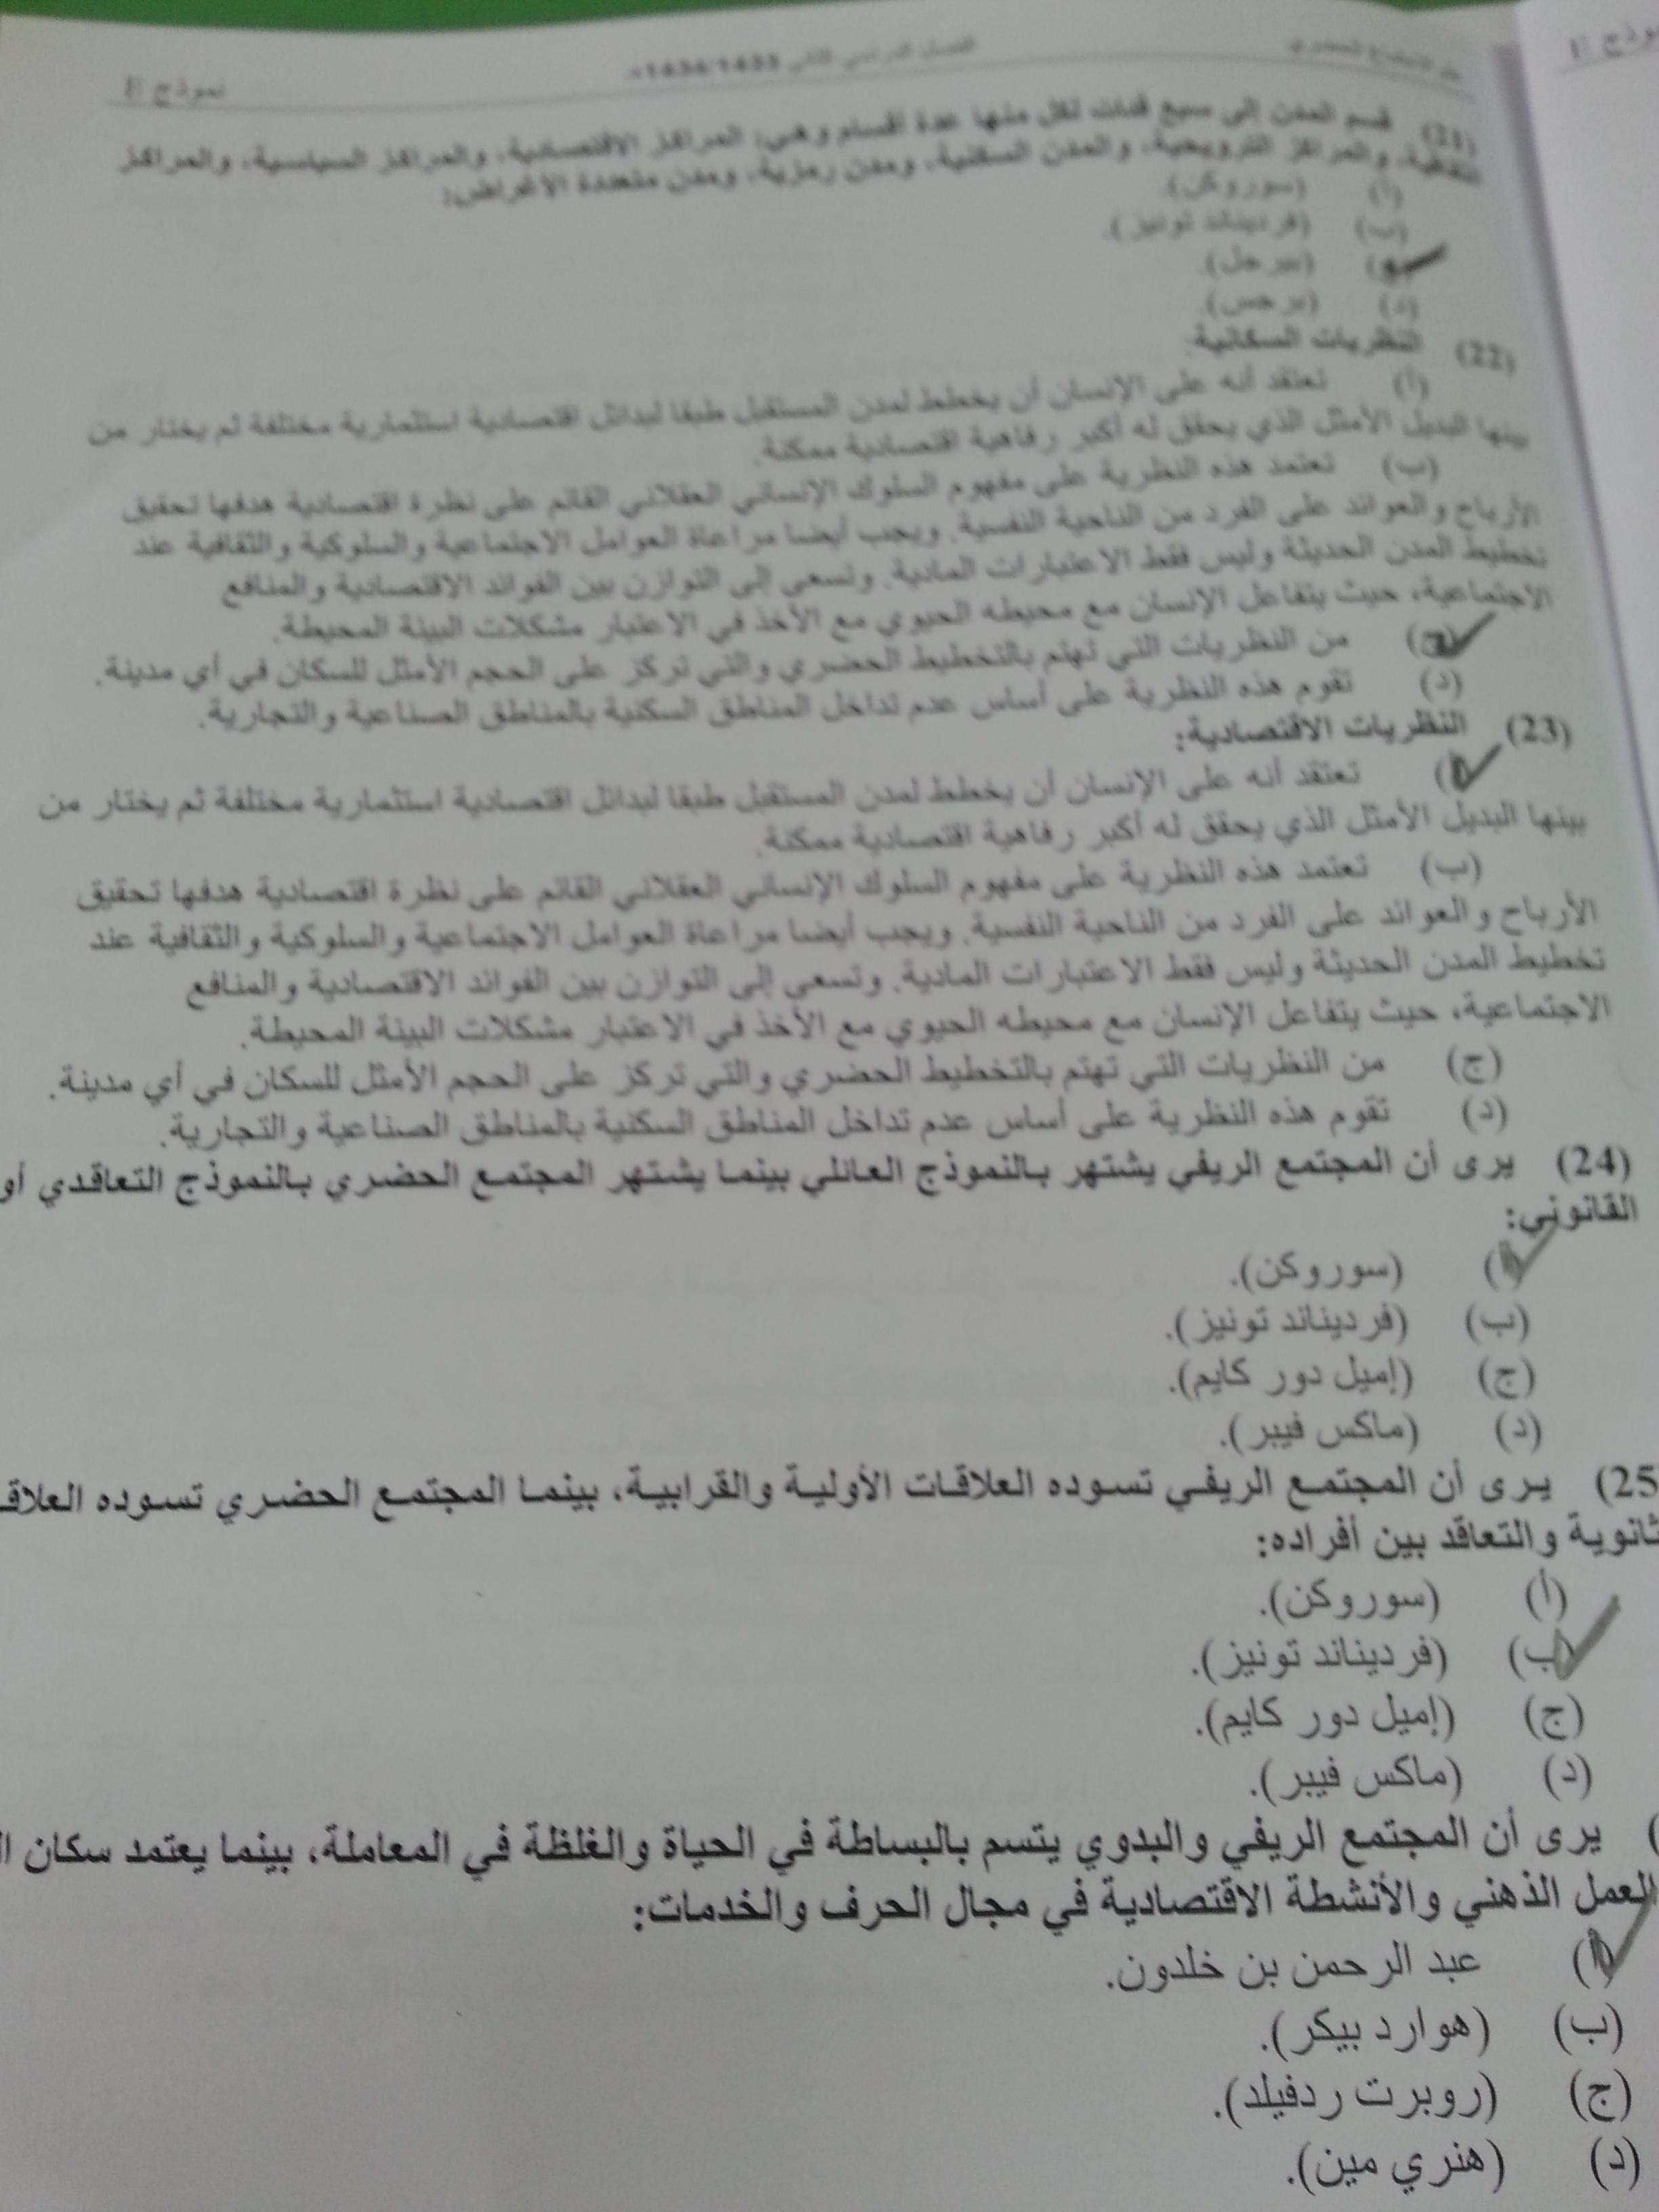 علم الاجتماع الحضري الفصل الدراسي الثاني 1434/1433هـ نموذج E
نموذج E
(21) قسم المدن إلى سبع فئات لكل منها عدة أقسام وهي: المراكز الاقتصادية، والمراكز السياسية، والمراكز
الثقافية، والمراكز الترويحية، والمدن السكنية، ومدن رمزية، ومدن متعددة الأغراض:
(أ) (سوروكن).
(ب) (فرديناند تونيز).
(ج) (بيرجل).
(د) (برجس).
(22) النظريات السكانية:
(أ) تعتقد أنه على الإنسان أن يخطط لمدن المستقبل طبقا لبدائل اقتصادية استثمارية مختلفة ثم يختار من
بينها البديل الأمثل الذي يحقق له أكبر رفاهية اقتصادية ممكنة.
(ب) تعتمد هذه النظرية على مفهوم السلوك الإنساني العقلاني القائم على نظرة اقتصادية هدفها تحقيق
الأرباح والعوائد على الفرد من الناحية النفسية. ويجب أيضا مراعاة العوامل الاجتماعية والسلوكية والثقافية عند
تخطيط المدن الحديثة وليس فقط الاعتبارات المادية. وتسعى إلى التوازن بين الفوائد الاقتصادية والمنافع
الاجتماعية، حيث يتفاعل الإنسان مع محيطه الحيوي مع الأخذ في الاعتبار مشكلات البيئة المحيطة.
(ج) من النظريات التي تهتم بالتخطيط الحضري والتي تركز على الحجم الأمثل للسكان في أي مدينة.
(د) تقوم هذه النظرية على أساس عدم تداخل المناطق السكنية بالمناطق الصناعية والتجارية.
(23) النظريات الاقتصادية:
(أ) تعتقد أنه على الإنسان أن يخطط لمدن المستقبل طبقا لبدائل اقتصادية استثمارية مختلفة ثم يختار من
بينها البديل الأمثل الذي يحقق له أكبر رفاهية اقتصادية ممكنة.
(ب) تعتمد هذه النظرية على مفهوم السلوك الإنساني العقلاني القائم على نظرة اقتصادية هدفها تحقيق
الأرباح والعوائد على الفرد من الناحية النفسية. ويجب أيضا مراعاة العوامل الاجتماعية والسلوكية والثقافية عند
تخطيط المدن الحديثة وليس فقط الاعتبارات المادية. وتسعى إلى التوازن بين الفوائد الاقتصادية والمنافع
الاجتماعية، حيث يتفاعل الإنسان مع محيطه الحيوي مع الأخذ في الاعتبار مشكلات البيئة المحيطة.
(ج) من النظريات التي تهتم بالتخطيط الحضري والتي تركز على الحجم الأمثل للسكان في أي مدينة.
(د) تقوم هذه النظرية على أساس عدم تداخل المناطق السكنية بالمناطق الصناعية والتجارية.
(24) يرى أن المجتمع الريفي يشتهر بالنموذج العائلي بينما يشتهر المجتمع الحضري بالنموذج التعاقدي أو
القانوني:
(أ) (سوروكن).
(ب) (فرديناند تونيز).
(ج) (إميل دور كايم).
(د) (ماكس فيبر).
(25 يرى أن المجتمع الريفي تسوده العلاقات الأولية والقرابية، بينما المجتمع الحضري تسوده العلاق
ثانوية والتعاقد بين أفراده:
(أ) (سوروكن).
(ب) (فرديناند تونيز).
(ج) (إميل دور كايم).
(د) (ماكس فيبر).
) يرى أن المجتمع الريفي والبدوي يتسم بالبساطة في الحياة والغلظة في المعاملة، بينما يعتمد سكان ال
العمل الذهني والأنشطة الاقتصادية في مجال الحرف والخدمات:
(أ) عبد الرحمن بن خلدون.
(ب) (هوارد بيكر).
(ج) (روبرت ردفيلد).
(د) (هنري مين).